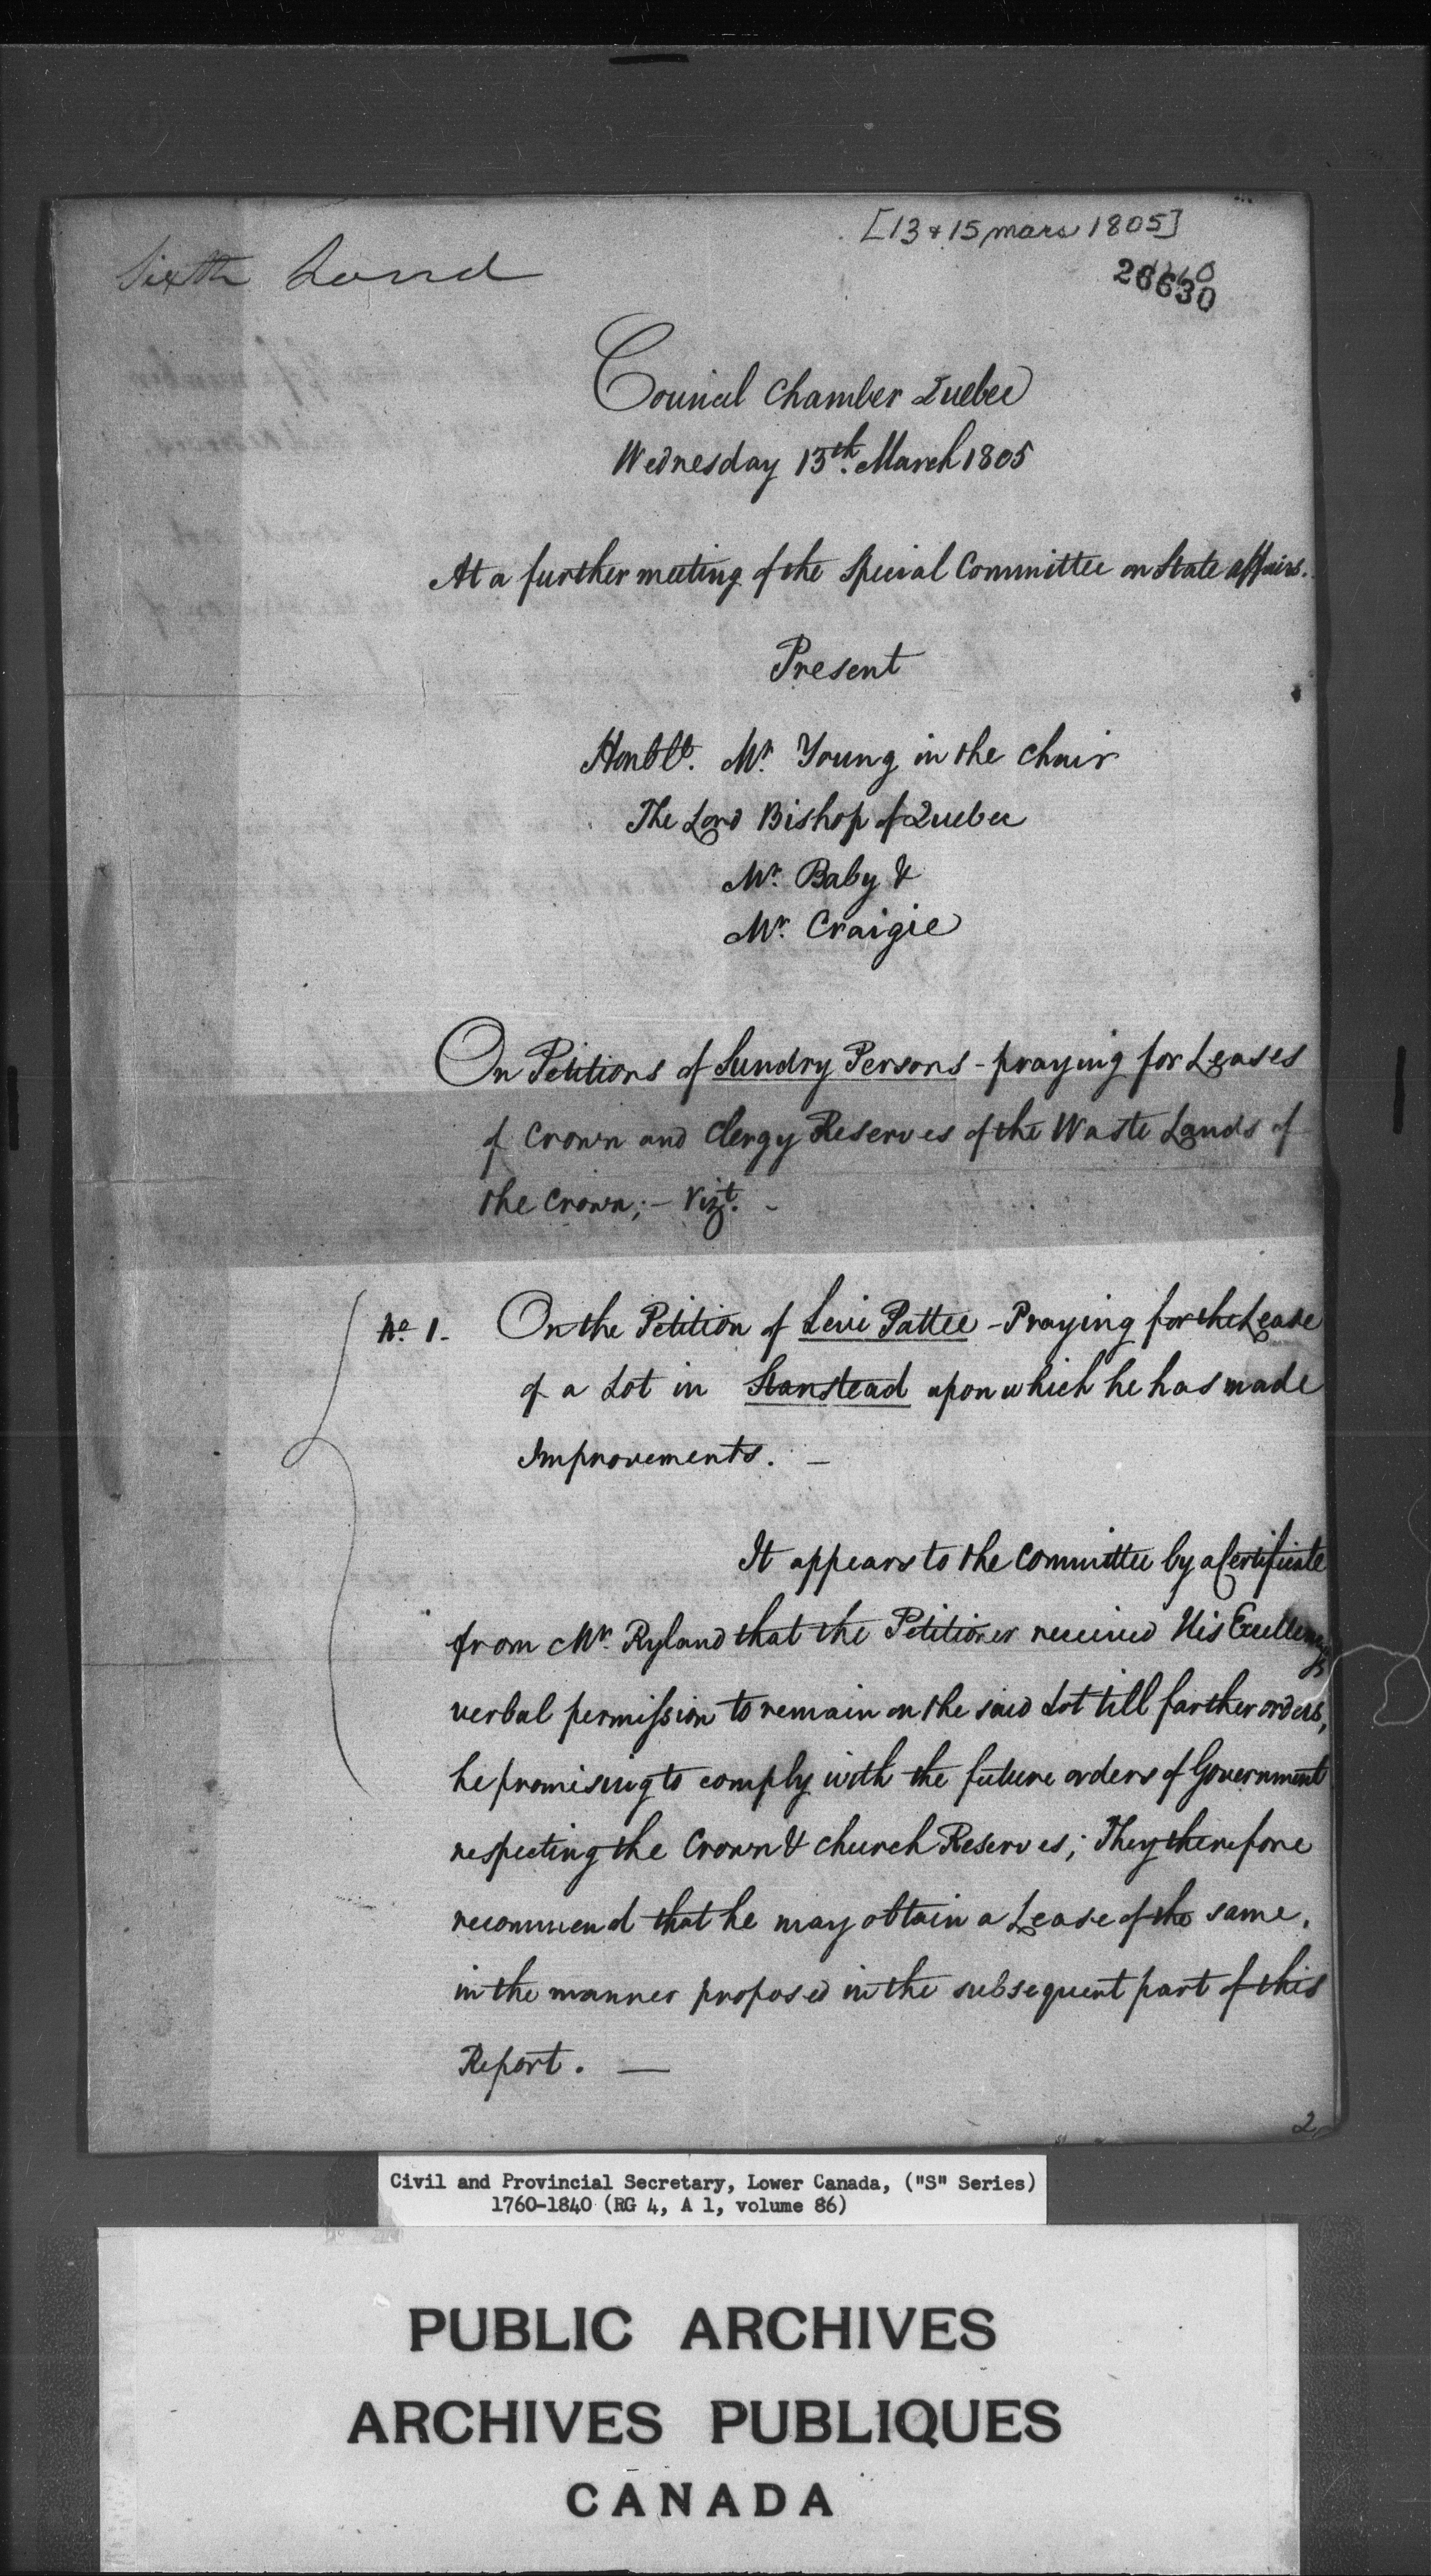 [13 & 15 mars 1805]
Sixth Land
26630
Council Chamber Quebec
Wednesday 13th. March 1805
At a further meeting of the Special Committee on State affairs.
Present
Honble. Mr. Young in the Chair
The Lord Bishop of Quebec
Mr. Baby &
Mr. Craigie
On Petitions of Sundry Persons - praying for Leases
of Crown and Clergy Reserves of the Waste Lands of
the Crown; - Vizt. -
No. 1. On the Petition of Levi Pattee - Praying for the Lease
of a Lot in Stanstead upon which he has made
Improvements. -
It appears to the Committee by a Certificate
from Mr. Ryland that the Petitioner received His Excellency's
verbal permission to remain on the said Lot till farther orders,
he promising to comply with the future orders of Government
respecting the Crown & Church Reserves; They therefore
recommend that he may obtain a Lease of the same,
in the manner proposed in the subsequent part of this
Report. -
2
Civil and Provincial Secretary, Lower Canada, ("S" Series)
1760-1840 (RG 4, A 1, volume 86)
PUBLIC ARCHIVES
ARCHIVES PUBLIQUES
CANADA